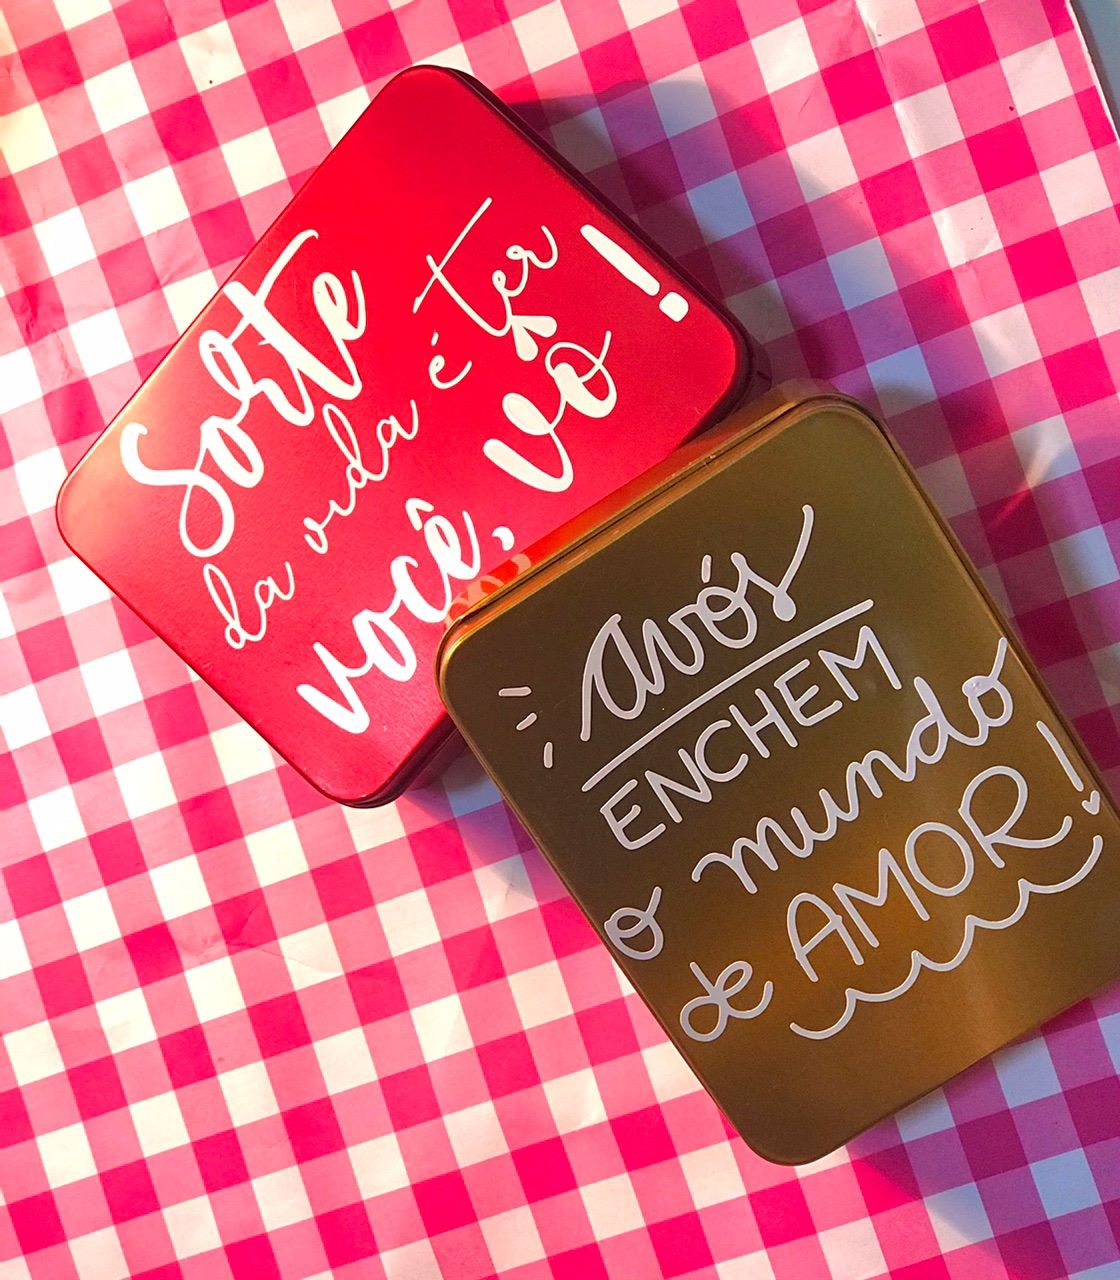 Sorte
da vida é ter
você, vô!
Avós
ENCHEM
o mundo
de AMOR!